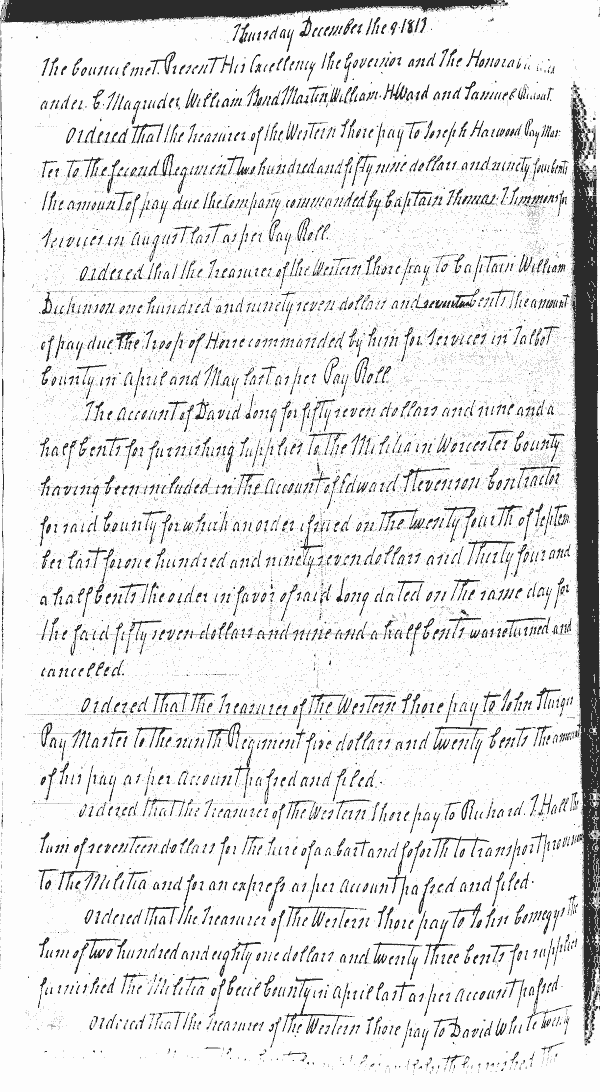 Thursday December the 9. 1813
The Council met Present His Excellency the Governor and The Honorable
ander. C. Magruder, William Bond Martin, William. H. Ward and Samuel
Ordered that the Treasurer of the Western Shore pay to Joseph Harwood Pay Mas
ter to the Second Regiment two hundred and fifty nine dollars and ninety four Cents
the amount of pay due the Company commanded by Captain Thomas. T. Simmons for
Services in August last as per Pay Roll.
Ordered that the Treasurer of the Western Shore pay to Captain William
Dickinson one hundred and ninety seven dollars and Cents the amount
of pay due The Troop of Horse commanded by him for Services in Talbot
County in April and May last as per Pay Roll.
The Account of David Long for fifty seven dollars and nine and a
half Cents for furnishing supplies to the Militia in Worcester County
having been included in the Account of Edward Stevenson Contractor
for said County for which an order issued on the twenty fourth of Septem
ber last for one hundred and ninety seven dollars and Thirty four and
a half Cents the order in favor of said Long dated on the same day for
the said fifty seven dollars and nine and a half Cents was returned and
cancelled.
Ordered that the Treasurer of the Western Shore pay to John Sturges
Pay Master to the ninth Regiment five dollars and twenty Cents the amount
of his pay as per Account passed and filed.
Ordered that the Treasurer of the Western Shore pay to Richard. T. Hall the
Sum of seventeen dollars for the hire of a a Cart and so forth to transport provisions
to the Militia and for an express as per Account passed and filed.
Ordered that the Treasurer of the Western Shore pay to John Comegys the
Sum of two hundred and eighty one dollars and twenty three Cents for supplies
furnished the Militia of Cecil County in April last as per Account passed.
Ordered that the Treasurer of the Western Shore pay to David White twenty
and so forth furnished the